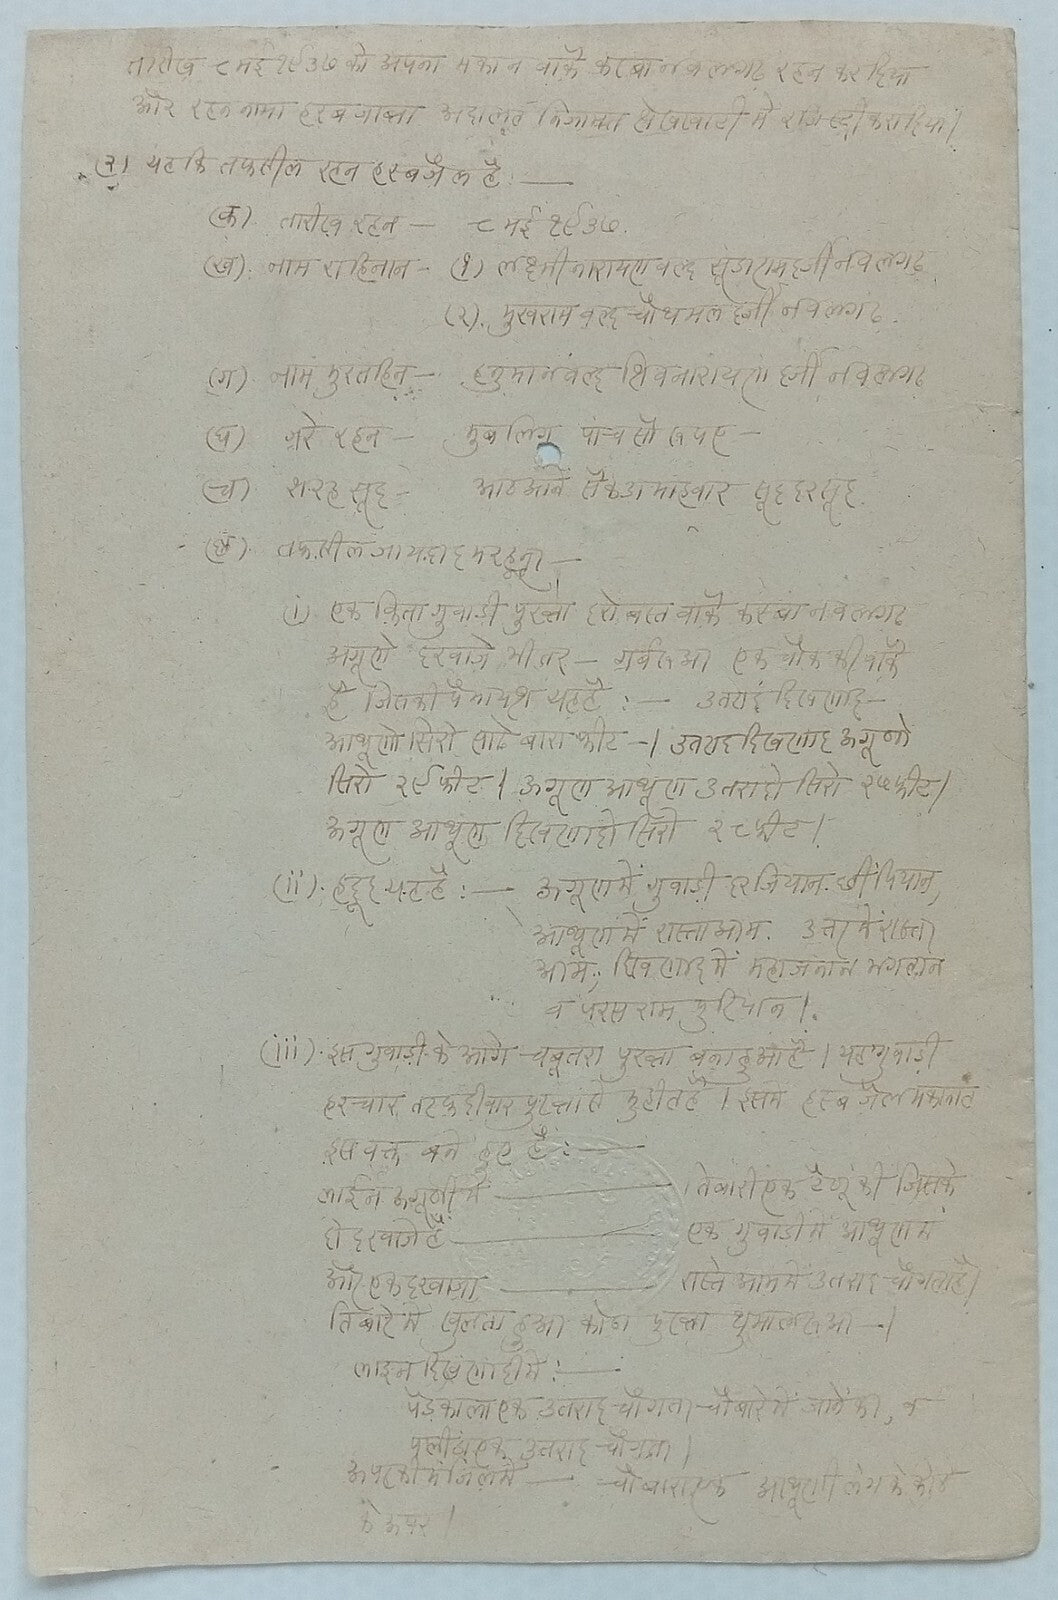 तारीख ८ मई १९३७ को अपना मकान वाकै कस्बा नवलगढ रहन कर दिया
और रहननामा हस्ब जाब्ता अदालत निजामत शेखावाटी में रजिस्ट्री करा दिया।
(२) यह कि तफसील रहन हस्ब जैल है :—
(क) तारीख रहन — ८ मई १९३७.
(ख) नाम राहिनान - (१) लक्ष्मीनारायण वल्द सूंडाराम दर्जी नवलगढ
(२) मुखराम वल्द चौथमल दर्जी नवलगढ.
(ग) नाम मुरतहिन — हनुमान वल्द शिवनारायण दर्जी नवलगढ
(घ) जरे रहन — मुबलिग पांच सौ रूपए —
(च) शरह सूद - आठ आने सैकडा माहवार सूद दर सूद
(छ) तफसील जायदाद मरहूना —
(i) एक किता गुवाडी पुख्ता दरोबस्त वाकै कस्बा नवलगढ
अगूणे दरवाजे भीतर — गर्बरूआ एक चौक की वाकै
है जिसकी पैमायश यह है :— उतराद दिखणाद —
आथूणे सिरो साढे बारा फीट —। उतराद दिखणाद अगूणो
सिरो २९ फीट। अगूण आथूण उतरादो सिरो २७ फीट।
अगूण आथूण दिखणादो सिरो २८ फीट।
(ii) हदूद यह है :— अगूण में गुवाडी दरजियान छींपियान,
आथूण में रास्ता आम. उत्तर में रास्ता
आम, दिखणाद में महाजनान भगतान
व परसरामपुरियान।
(iii) इस गुवाड़ी के आगे चबूतरा पुख्ता बना हुआ है। यह गुवाड़ी
हर चार तरफ दीवार पुख्ता से मुहीत है। इसमें हस्ब जैल मकानात
इस वक्त बने हुए हैं :—
लाईन अगूणी में — तिबारी एक दैणूं की जिसके
दो दरवाजे हैं — एक गुवाडी में आथूण में
और एक दरवाजा — रास्ते आम में उतराद चौगता है।
तिबारे में खुलता हुआ कोठा पुख्ता धुमालरूआ —।
लाइन दिखणादी में :—
पैडकाला एक उतराद चौगता चौबारे में जाने की, व
पोली एक उतराद चौगता।
ऊपर की मंजिल में — चौबारा एक आथूणी लंग के कोठे
के ऊपर।